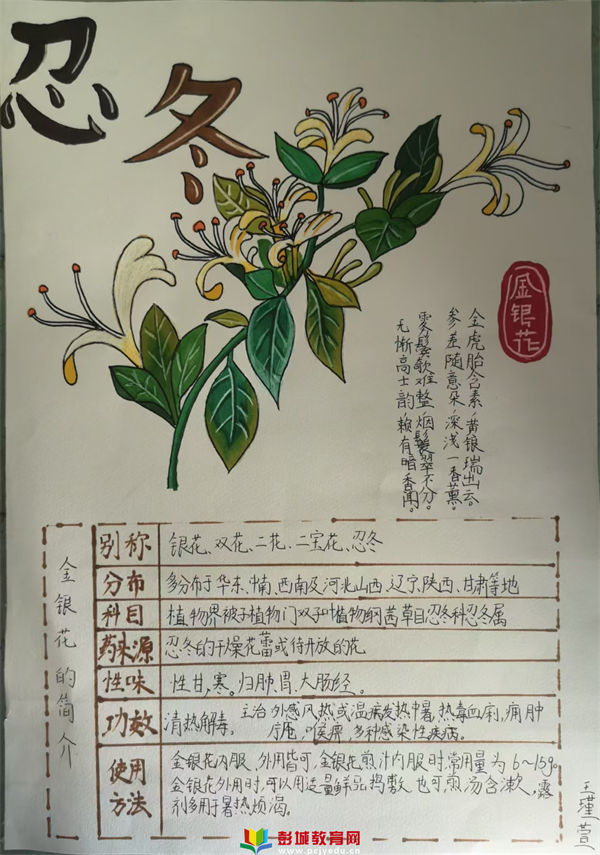 忍冬
金银花
金虎胎含素，黄银瑞出云。
参差随意朵，深浅一香薰。
雾鬓欹难整，烟鬟翠不分。
无惭高士韵，赖有暗香闻。
金银花的简介
别称 银花、双花、二花、二宝花、忍冬
分布 多分布于华东、中南、西南及河北山西、辽宁、陕西、甘肃等地
科目 植物界被子植物门双子叶植物纲茜草目忍冬科忍冬属
药来源 忍冬的干燥花蕾或待开放的花
性味 性甘，寒。归肺、胃、大肠经。
功效 清热解毒。 主治外感风热或温病发热中暑，热毒血痢，痈肿
疔疮，喉痹，多种感染性疾病。
使用方法 金银花内服、外用皆可，金银花煎汁内服时，常用量为6~15g。
金银花外用时，可以用适量鲜品捣敷，也可煎汤含漱，露
剂多用于暑热烦渴。
王瑾萱
彭城教育网
www.pcjyedu.cn